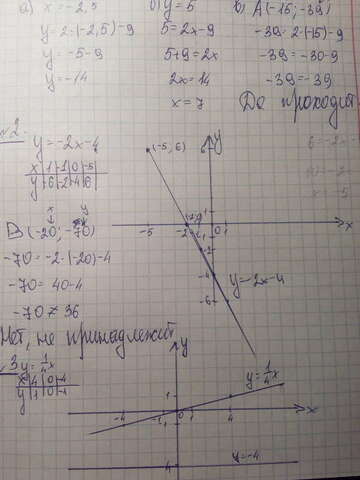 а) x=-2,5 б) y=5 в) A(-15; -39)
y=2·(-2,5)-9 5=2x-9 -39=2·(-15)-9
y=-5-9 5+9=2x -39=-30-9
y=-14 2x=14 -39=-39
x=7 Да проходит
№2.
y=-2x-4
x | 1 | -1 | 0 | -5
y | -6 | -2 | -4 | 6
(-5, 6) 6 y
x y
B(-20; -70)
-5 -2 -1 0 1 x
1
-2
-4
-6
y=-2x-4
-70=-2·(-20)-4
-70=40-4
-70≠36
Нет, не принадлежит
3 y=1/4x
x | 4 | 0 | -4
y | 1 | 0 | -1
y
y=1/4x
-4 -1 0 1 4 x
1
y=-4